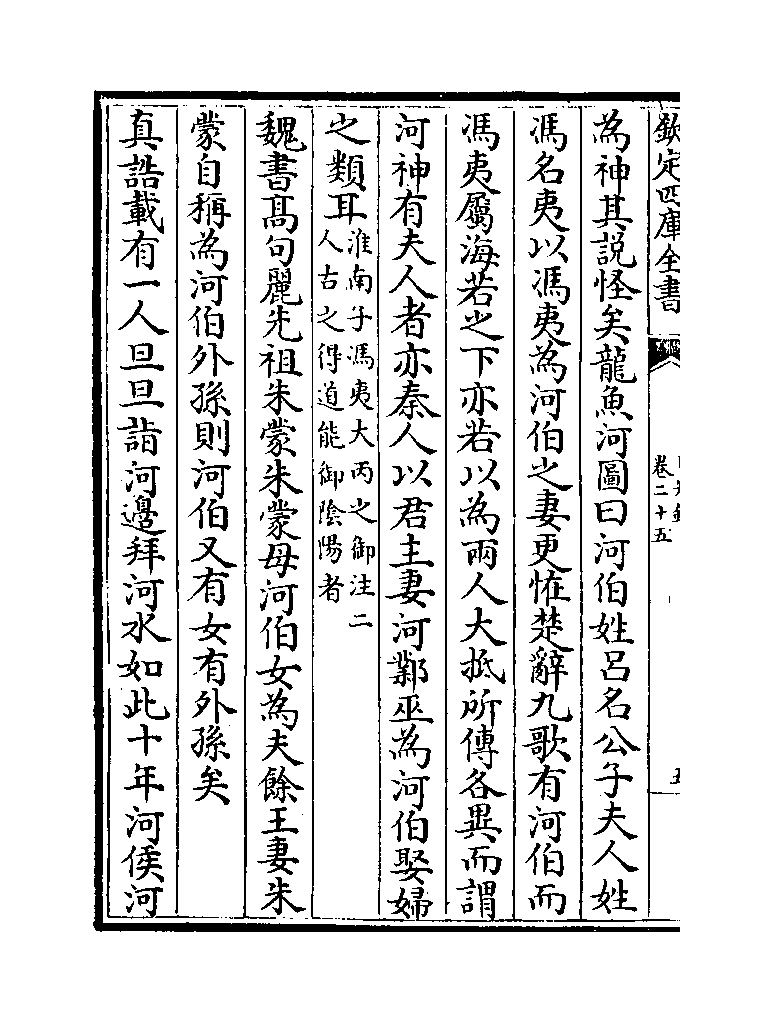 欽定四庫全書
卷二十五
為神其説怪矣龍魚河圖曰河伯姓呂名公子夫人姓
馮名夷以馮夷為河伯之妻更怪楚辭九歌有河伯而
馮夷屬海若之下亦若以為兩人大抵所傳各異而謂
河神有夫人者亦秦人以君主妻河鄴巫為河伯娶婦
之類耳淮南子馮夷大丙之御注二
人古之得道能御陰陽者
魏書髙句麗先祖朱蒙朱蒙母河伯女為夫餘王妻朱
蒙自稱為河伯外孫則河伯又有女有外孫矣
真誥載有一人旦旦詣河邊拜河水如此十年河侯河